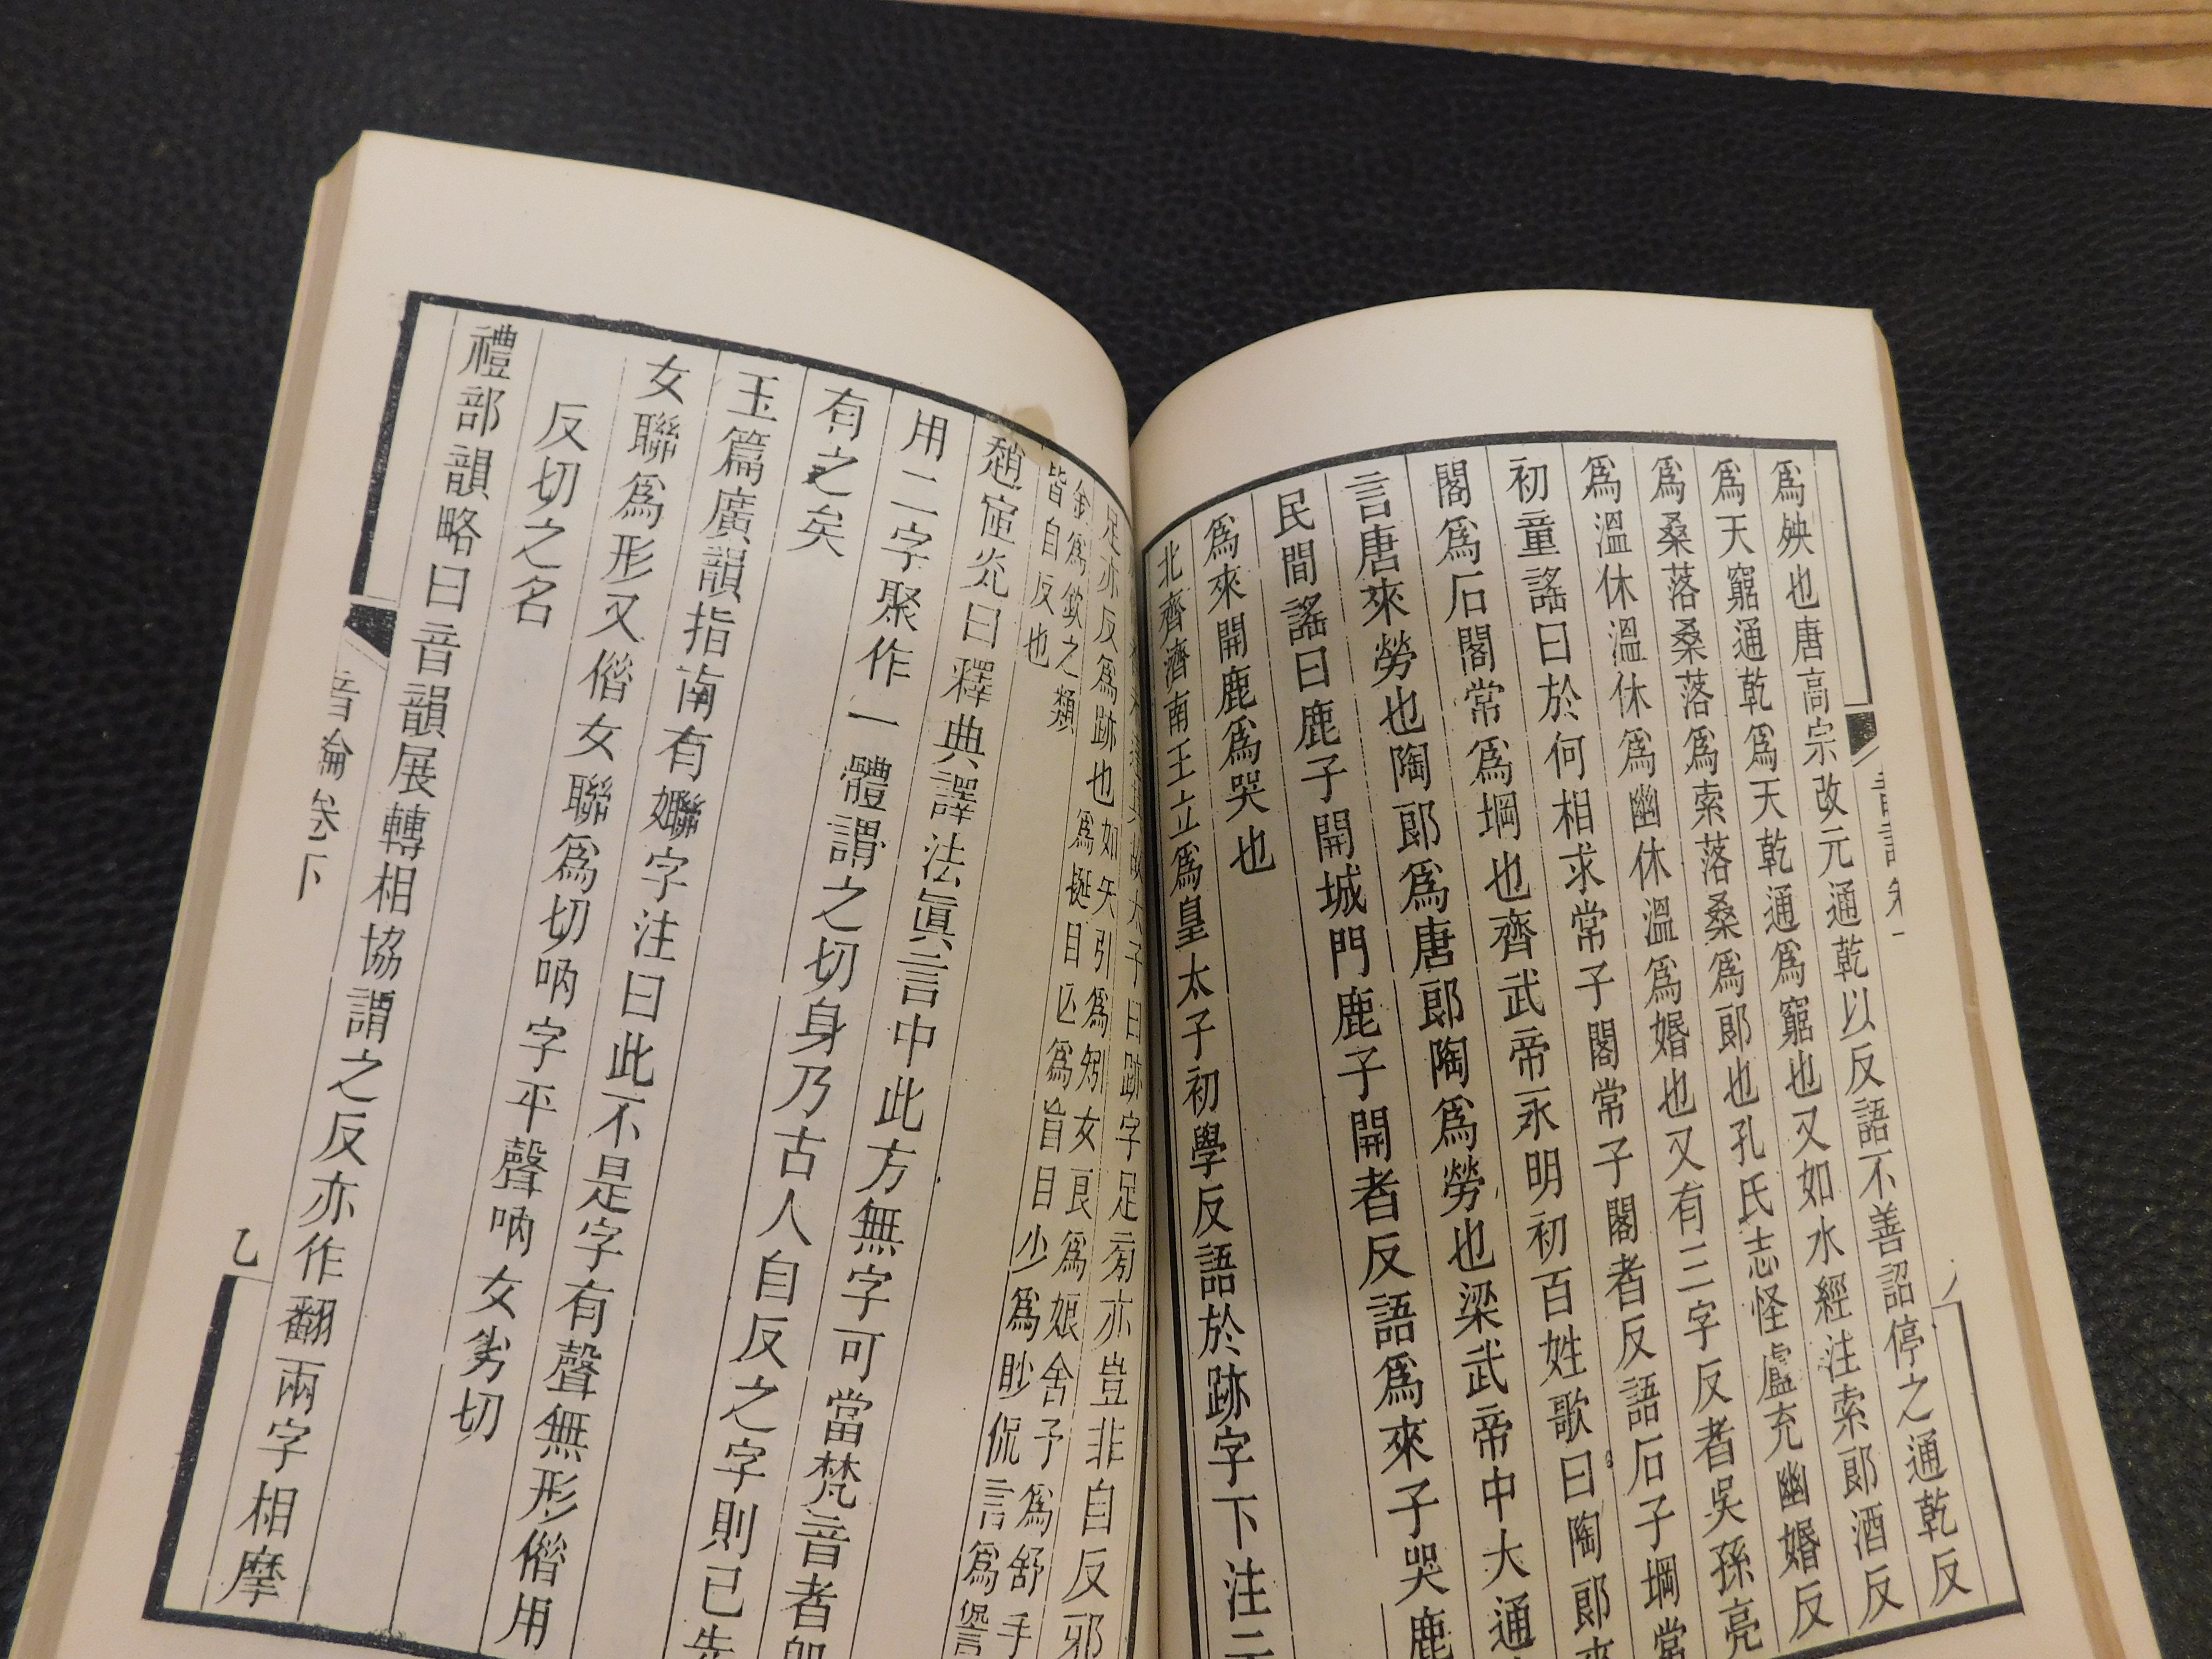 爲殃也唐高宗改元通乾以反語不善詔停之通乾反
爲天窮通乾爲天乾通爲窮也又如水經注索郎酒反
爲桑落桑落爲索落桑爲郎也孔氏志怪盧充幽婚反
爲溫休溫休爲幽休溫爲婚也又有三字反者吳孫亮
初童謠曰於何相求常子閣常子閣者反語石子堈常
閣爲石閣常爲堈也齊武帝永明初百姓歌曰陶郎來
言唐來勞也陶郎爲唐郎陶爲勞也梁武帝中大通
民間謠曰鹿子開城門鹿子開者反語爲來子哭鹿
爲來開鹿爲哭也
北齊濟南王立爲皇太子初學反語於跡字下注云
太子曰跡字足旁亦豈非自反邪
足亦反爲跡也如矢引爲矧女良爲娘舍予爲舒手
金爲欽之類 爲挻目亾爲盲目少爲眇侃言爲諐
皆自反也
趙宧光曰釋典譯法眞言中此方無字可當梵音者卽
用二字聚作一體謂之切身乃古人自反之字則已先
有之矣
玉篇廣韻指南有㜻字注曰此不是字有聲無形偕用
女聯爲形又偕女聯爲切吶字平聲吶女劣切
反切之名
禮部韻略曰音韻展轉相協謂之反亦作翻兩字相摩
音論卷下
乙